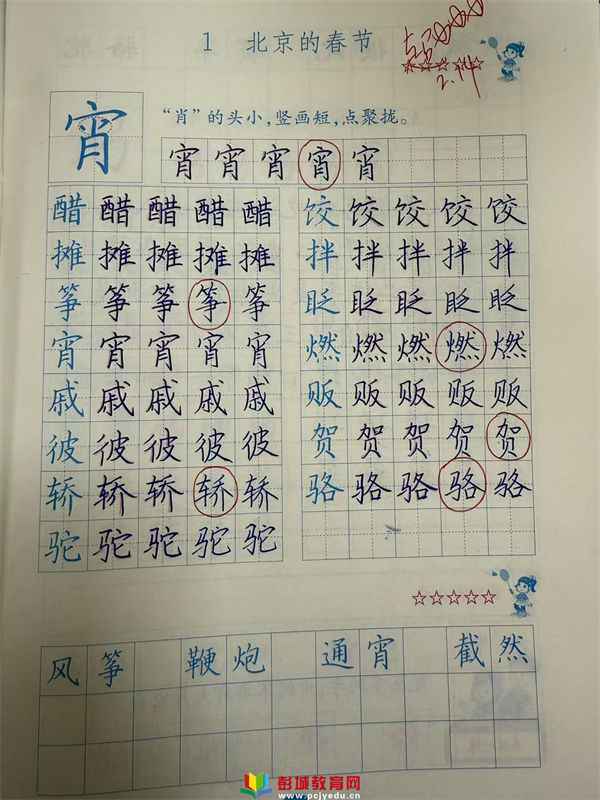 1 北京的春节
2.14
宵
“肖”的头小，竖画短，点聚拢。
宵 宵 宵 宵 宵
醋 醋 醋 醋 醋 饺 饺 饺 饺 饺
摊 摊 摊 摊 摊 拌 拌 拌 拌 拌
筝 筝 筝 筝 筝 眨 眨 眨 眨 眨
宵 宵 宵 宵 宵 燃 燃 燃 燃 燃
戚 戚 戚 戚 戚 贩 贩 贩 贩 贩
彼 彼 彼 彼 彼 贺 贺 贺 贺 贺
轿 轿 轿 轿 轿 骆 骆 骆 骆 骆
驼 驼 驼 驼 驼
风筝 鞭炮 通宵 截然
彭城教育网
www.pcjyedu.cn